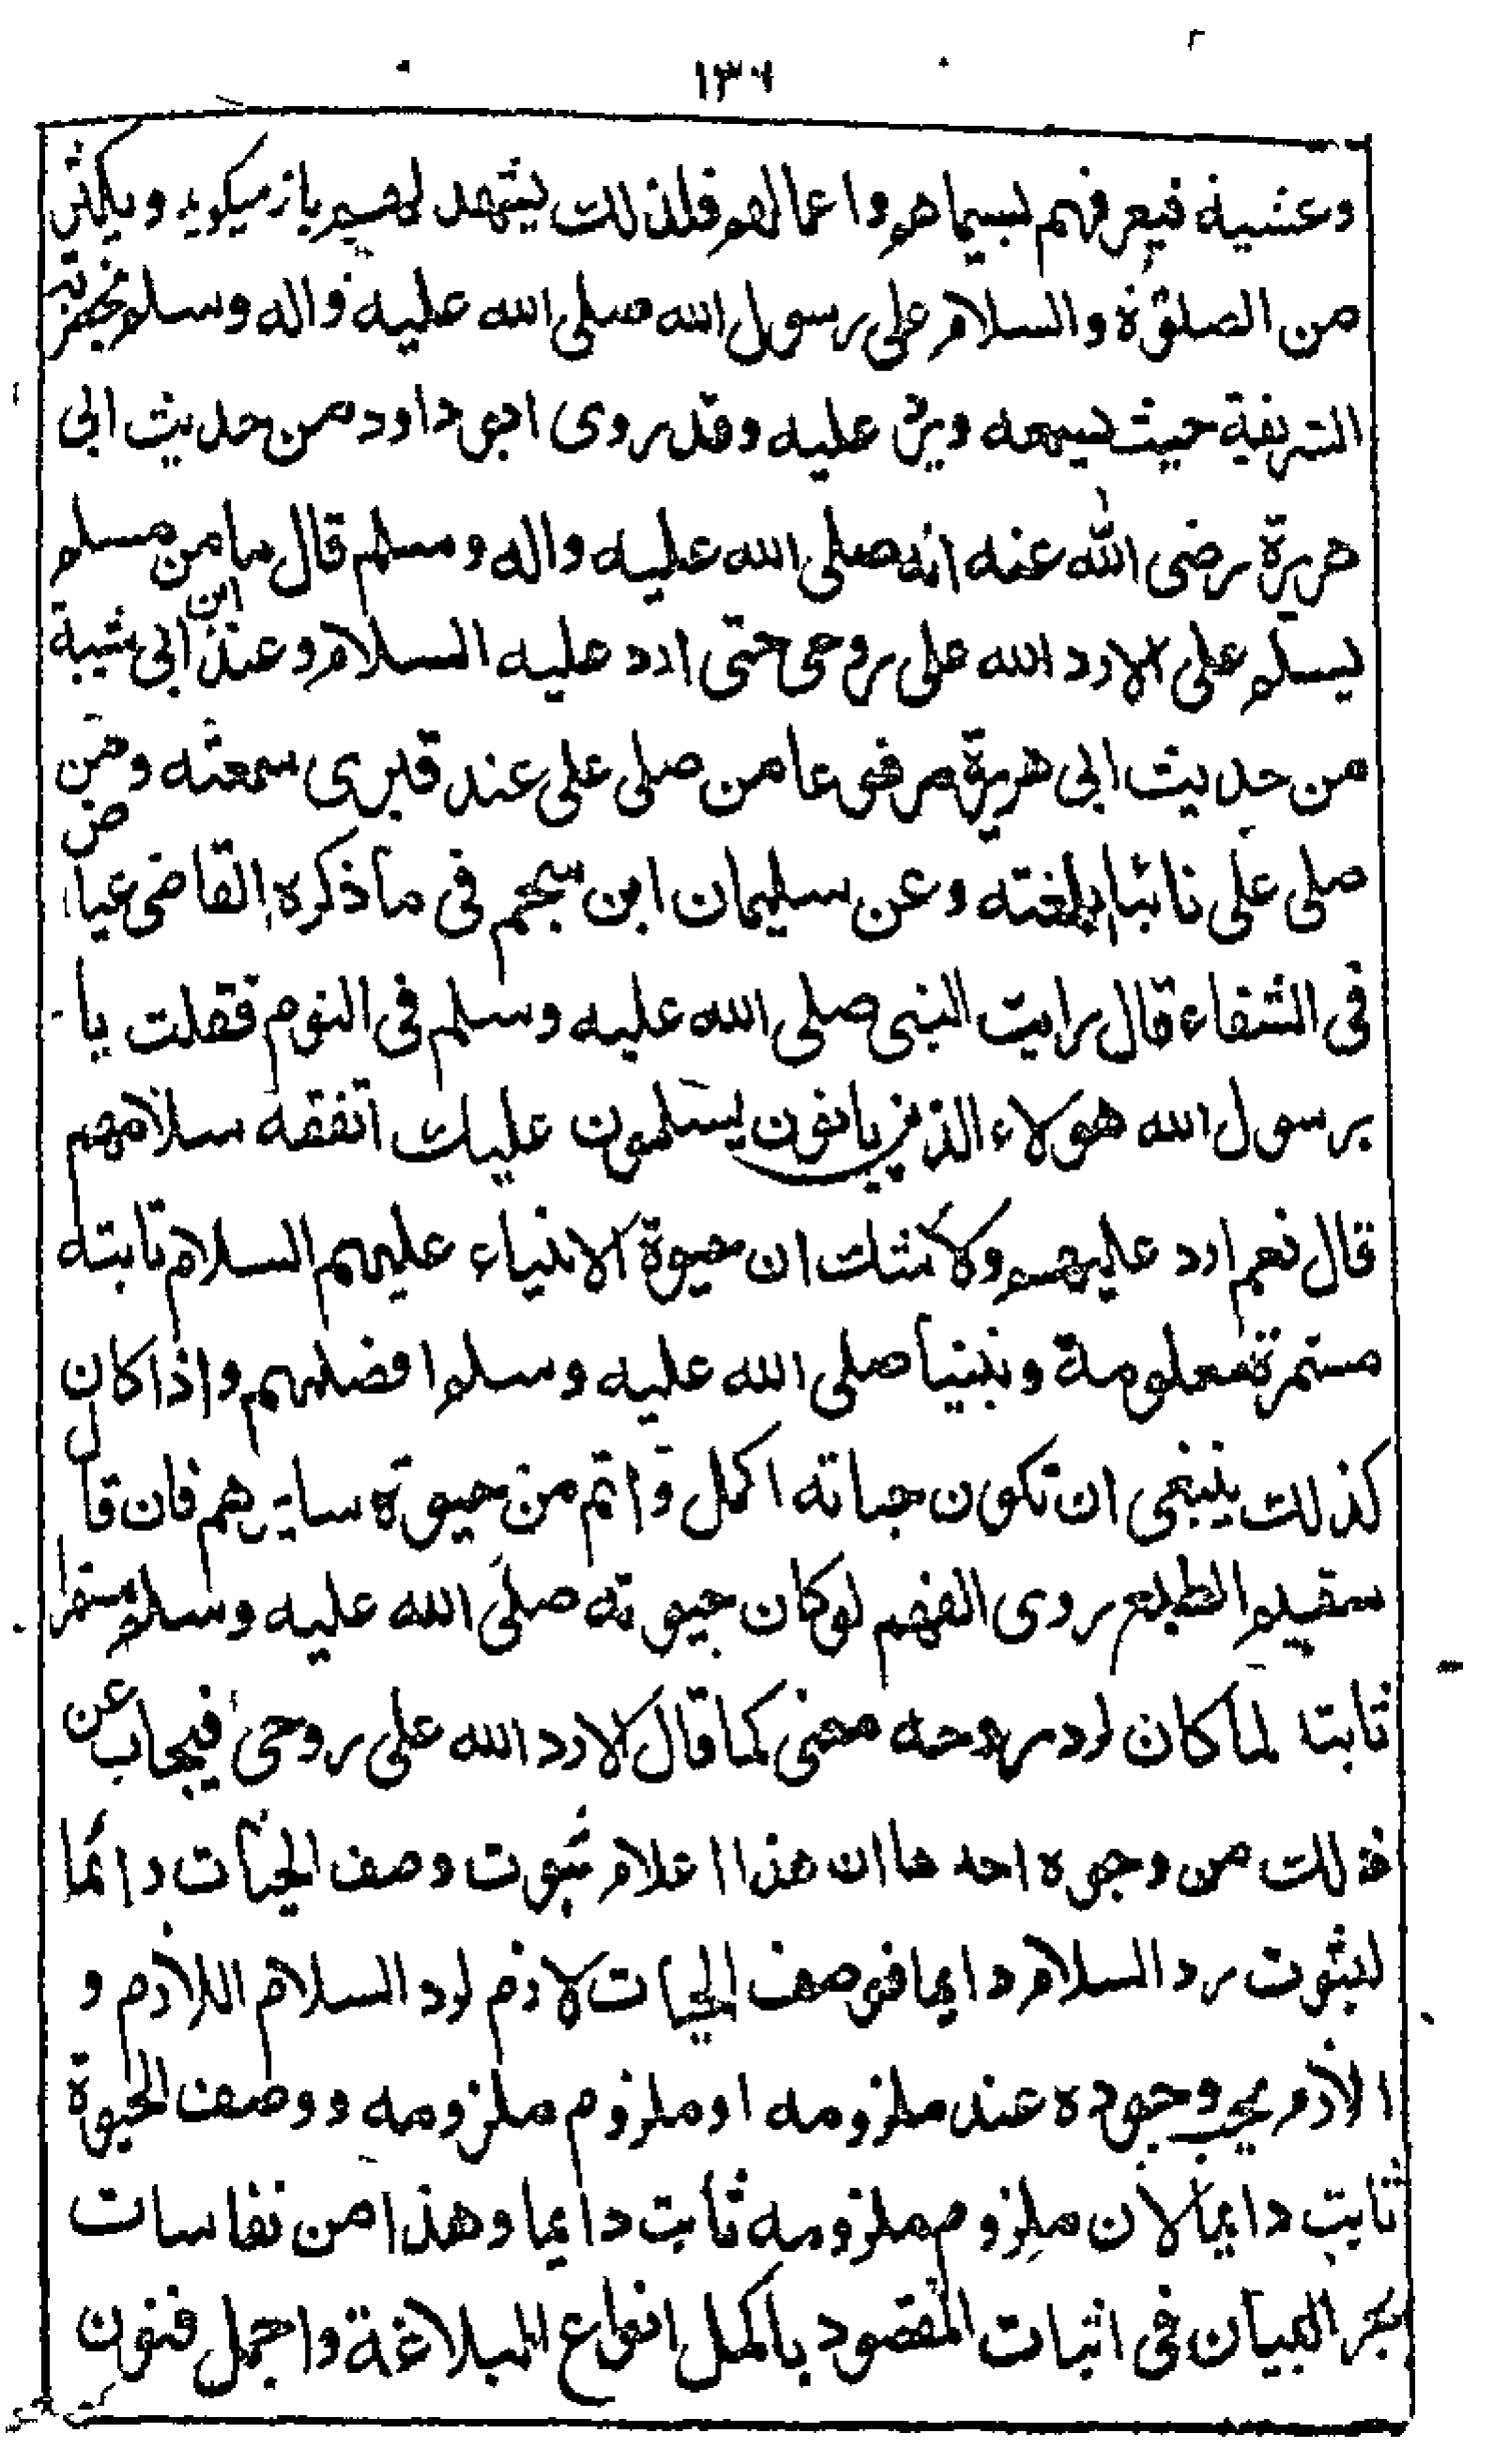 ١٣٦
وعشية فيعرفهم بسيماهم واعمالهم فلذلك يشهد لهم باز ميكويد ويكثر
من الصلوة والسلام على رسول الله صلى الله عليه واله وسلم بحضرته
الشريفة حيث يسمعه ويرد عليه وقد روى ابو داود من حديث ابى
هريرة رضى الله عنه انه صلى الله عليه واله وسلم قال ما من مسلم
يسلم على الا رد الله على روحى حتى ارد عليه السلام وعند ابن ابى شيبة
من حديث ابى هريرة مرفوعا من صلى على عند قبرى سمعته ومن
صلى على نائبا بلغته وعن سليمان ابن سحيم فى ما ذكره القاضى عياض
فى الشفاء قال رايت النبى صلى الله عليه وسلم فى النوم فقلت يا
رسول الله هولاء الذين ياتون يسلمون عليك اتفقه سلامهم
قال نعم ارد عليهم ولا شك ان حيوة الانبياء عليهم السلام ثابته
مستمرة معلومة ونبينا صلى الله عليه وسلم افضلهم واذا كان
كذلك ينبغى ان تكون حياته اكمل واتم من حيوة سايرهم فان قال
سقيم الطبع روى الفهم لو كان حيوته صلى الله عليه وسلم مستمرا
ثابتا لما كان لرد روحه معنى كما قال الا رد الله على روحى فيجاب عن
ذلك من وجوه احدها ان هذا اعلام ثبوت وصف الحيات دائما
لثبوت رد السلام دايما فوصف الحيات لازم لرد السلام اللازم و
الازم يجب وجوده عند ملزومه او ملزوم ملزومه ووصف الحيوة
ثابت دايما لان ملزوم ملزومه ثابت دايما وهذا من نفاسات
بحر البيان فى اثبات المقصود باكمل انواع البلاغة واجمل فنون